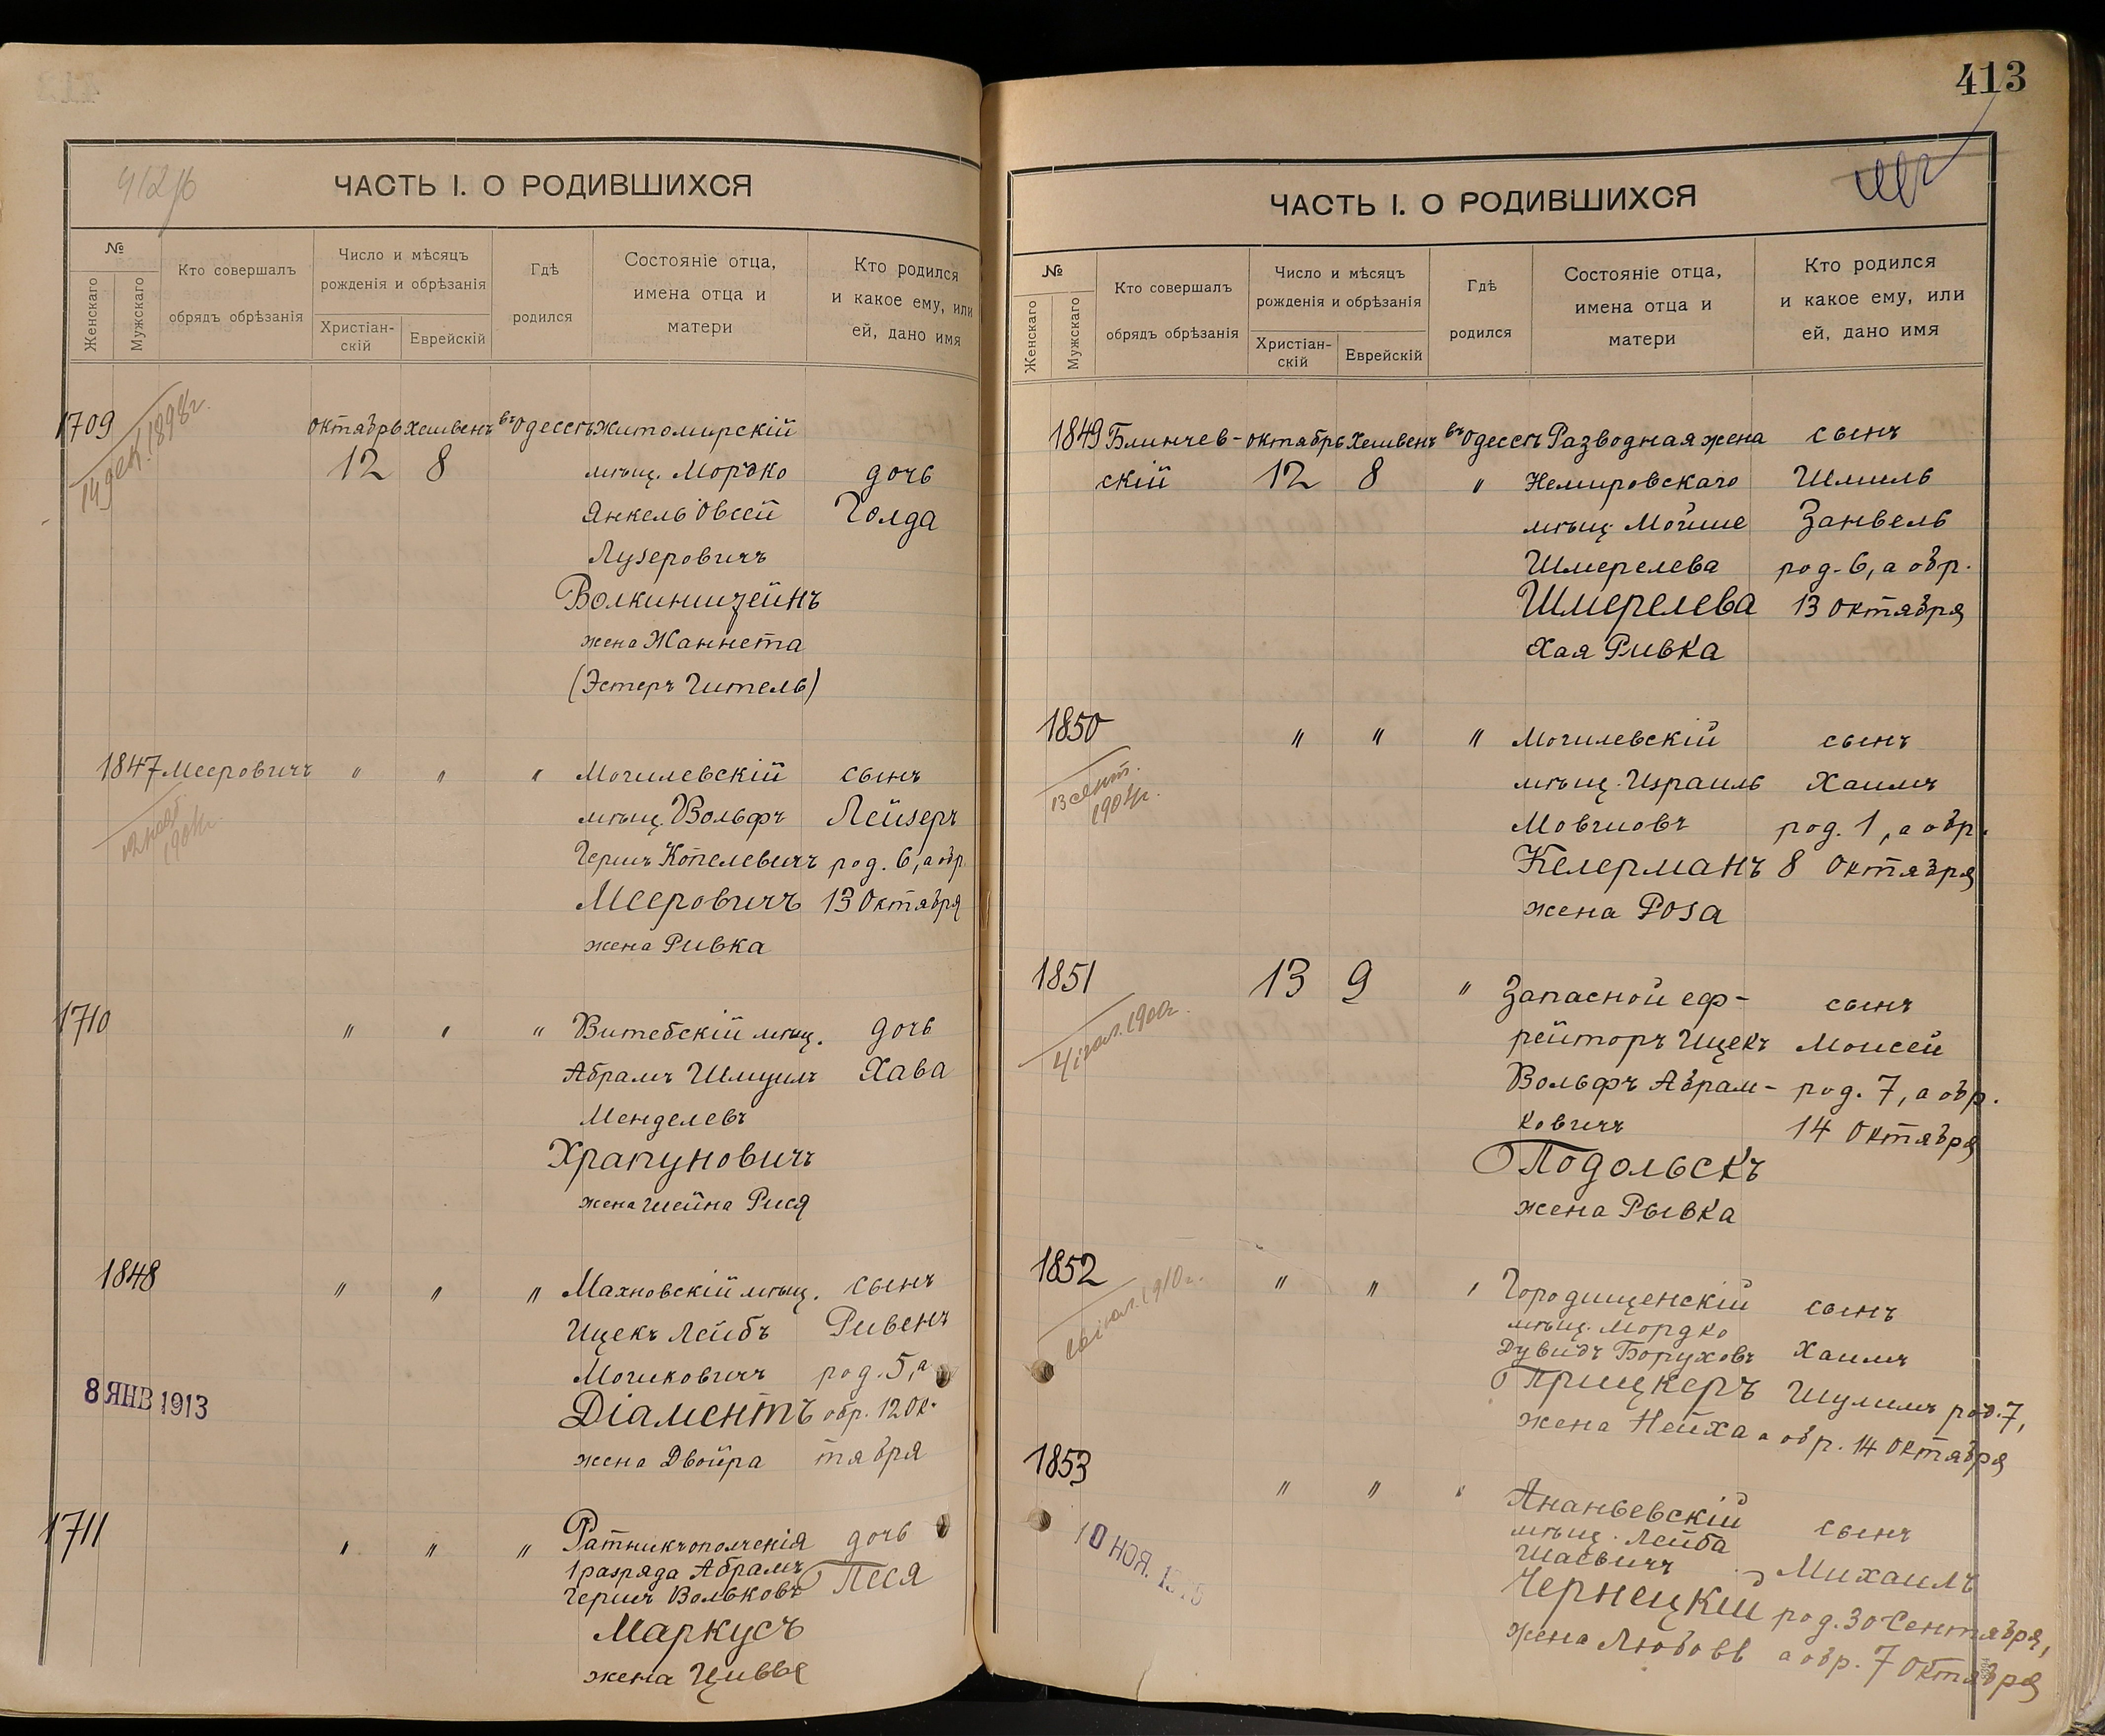 412 об
ЧАСТЬ I. О РОДИВШИХСЯ
№
Женскаго
Мужскаго
Кто совершалъ
обрядъ обрѣзанія
Число и мѣсяцъ
рожденія и обрѣзанія
Христіан-
скій
Еврейскій
Гдѣ
родился
Состояніе отца,
имена отца и
матери
Кто родился
и какое ему, или
ей, дано имя
1709
14 дек. 1898 г.
Октябрь Хешвенъ въ Одессѣ Житомирскій
12 8 мѣщ. Мордко дочь
Янкель Овсей Голда
Лузеровичъ
Волкинштейнъ
жена Жаннета
(Эстеръ Гитель)
1847 Мееровичъ " " " Могилевскій сынъ
мѣщ. Вольфъ Лейзеръ
Гершъ Копелевичъ род. 6, а обр.
Мееровичъ 13 Октября
жена Ривка
1710 " " " Витебскій мѣщ. дочь
Абрамъ Шмуилъ Хава
Менделевъ
Храпуновичъ
жена Шейна Рися
1848 " " " Махновскій мѣщ. сынъ
Ицекъ Лейбъ Рувенъ
Мошковичъ род. 5, а
8 ЯНВ 1913
Діаментъ обр. 12 Ок-
жена Двойра тября
1711 " " " Ратникъ ополченія дочь
1 разряда Абрамъ Песя
Гершъ Вольковъ
Маркусъ
жена Цивья
413
ЧАСТЬ I. О РОДИВШИХСЯ
№
Женскаго
Мужскаго
Кто совершалъ
обрядъ обрѣзанія
Число и мѣсяцъ
рожденія и обрѣзанія
Христіан-
скій
Еврейскій
Гдѣ
родился
Состояніе отца,
имена отца и
матери
Кто родился
и какое ему, или
ей, дано имя
1849 Блинчев- Октябрь Хешвенъ въ Одессѣ Разводная жена сынъ
скій 12 8 " Немировскаго Шмиль
мѣщ. Мойше Занвель
Шмерелева род. 6, а обр.
Шмерелева 13 Октября
Хая Ривка
1850 " " " Могилевскій сынъ
13 сент. 1904 г.
мѣщ. Израиль Хаимъ
Мовшовъ род. 1, а обр.
Келерманъ 8 Октября
жена Роза
1851 13 9 " Запасной еф- сынъ
рейторъ Ицекъ Моисей
Вольфъ Абрам- род. 7, а обр.
ковичъ 14 Октября
Подольскъ
жена Рывка
1852 " " " Городищенскій сынъ
мѣщ. Мордко
Дувидъ Боруховъ Хаимъ
Прицкеръ Шулимъ род. 7,
жена Нейха а обр. 14 Октября
1853 " " " Ананьевскій сынъ
мѣщ. Лейба
Шаевичъ Михаилъ
10 НОЯ.
Чернецкій род. 30 Сентября,
жена Любовь а обр. 7 Октября